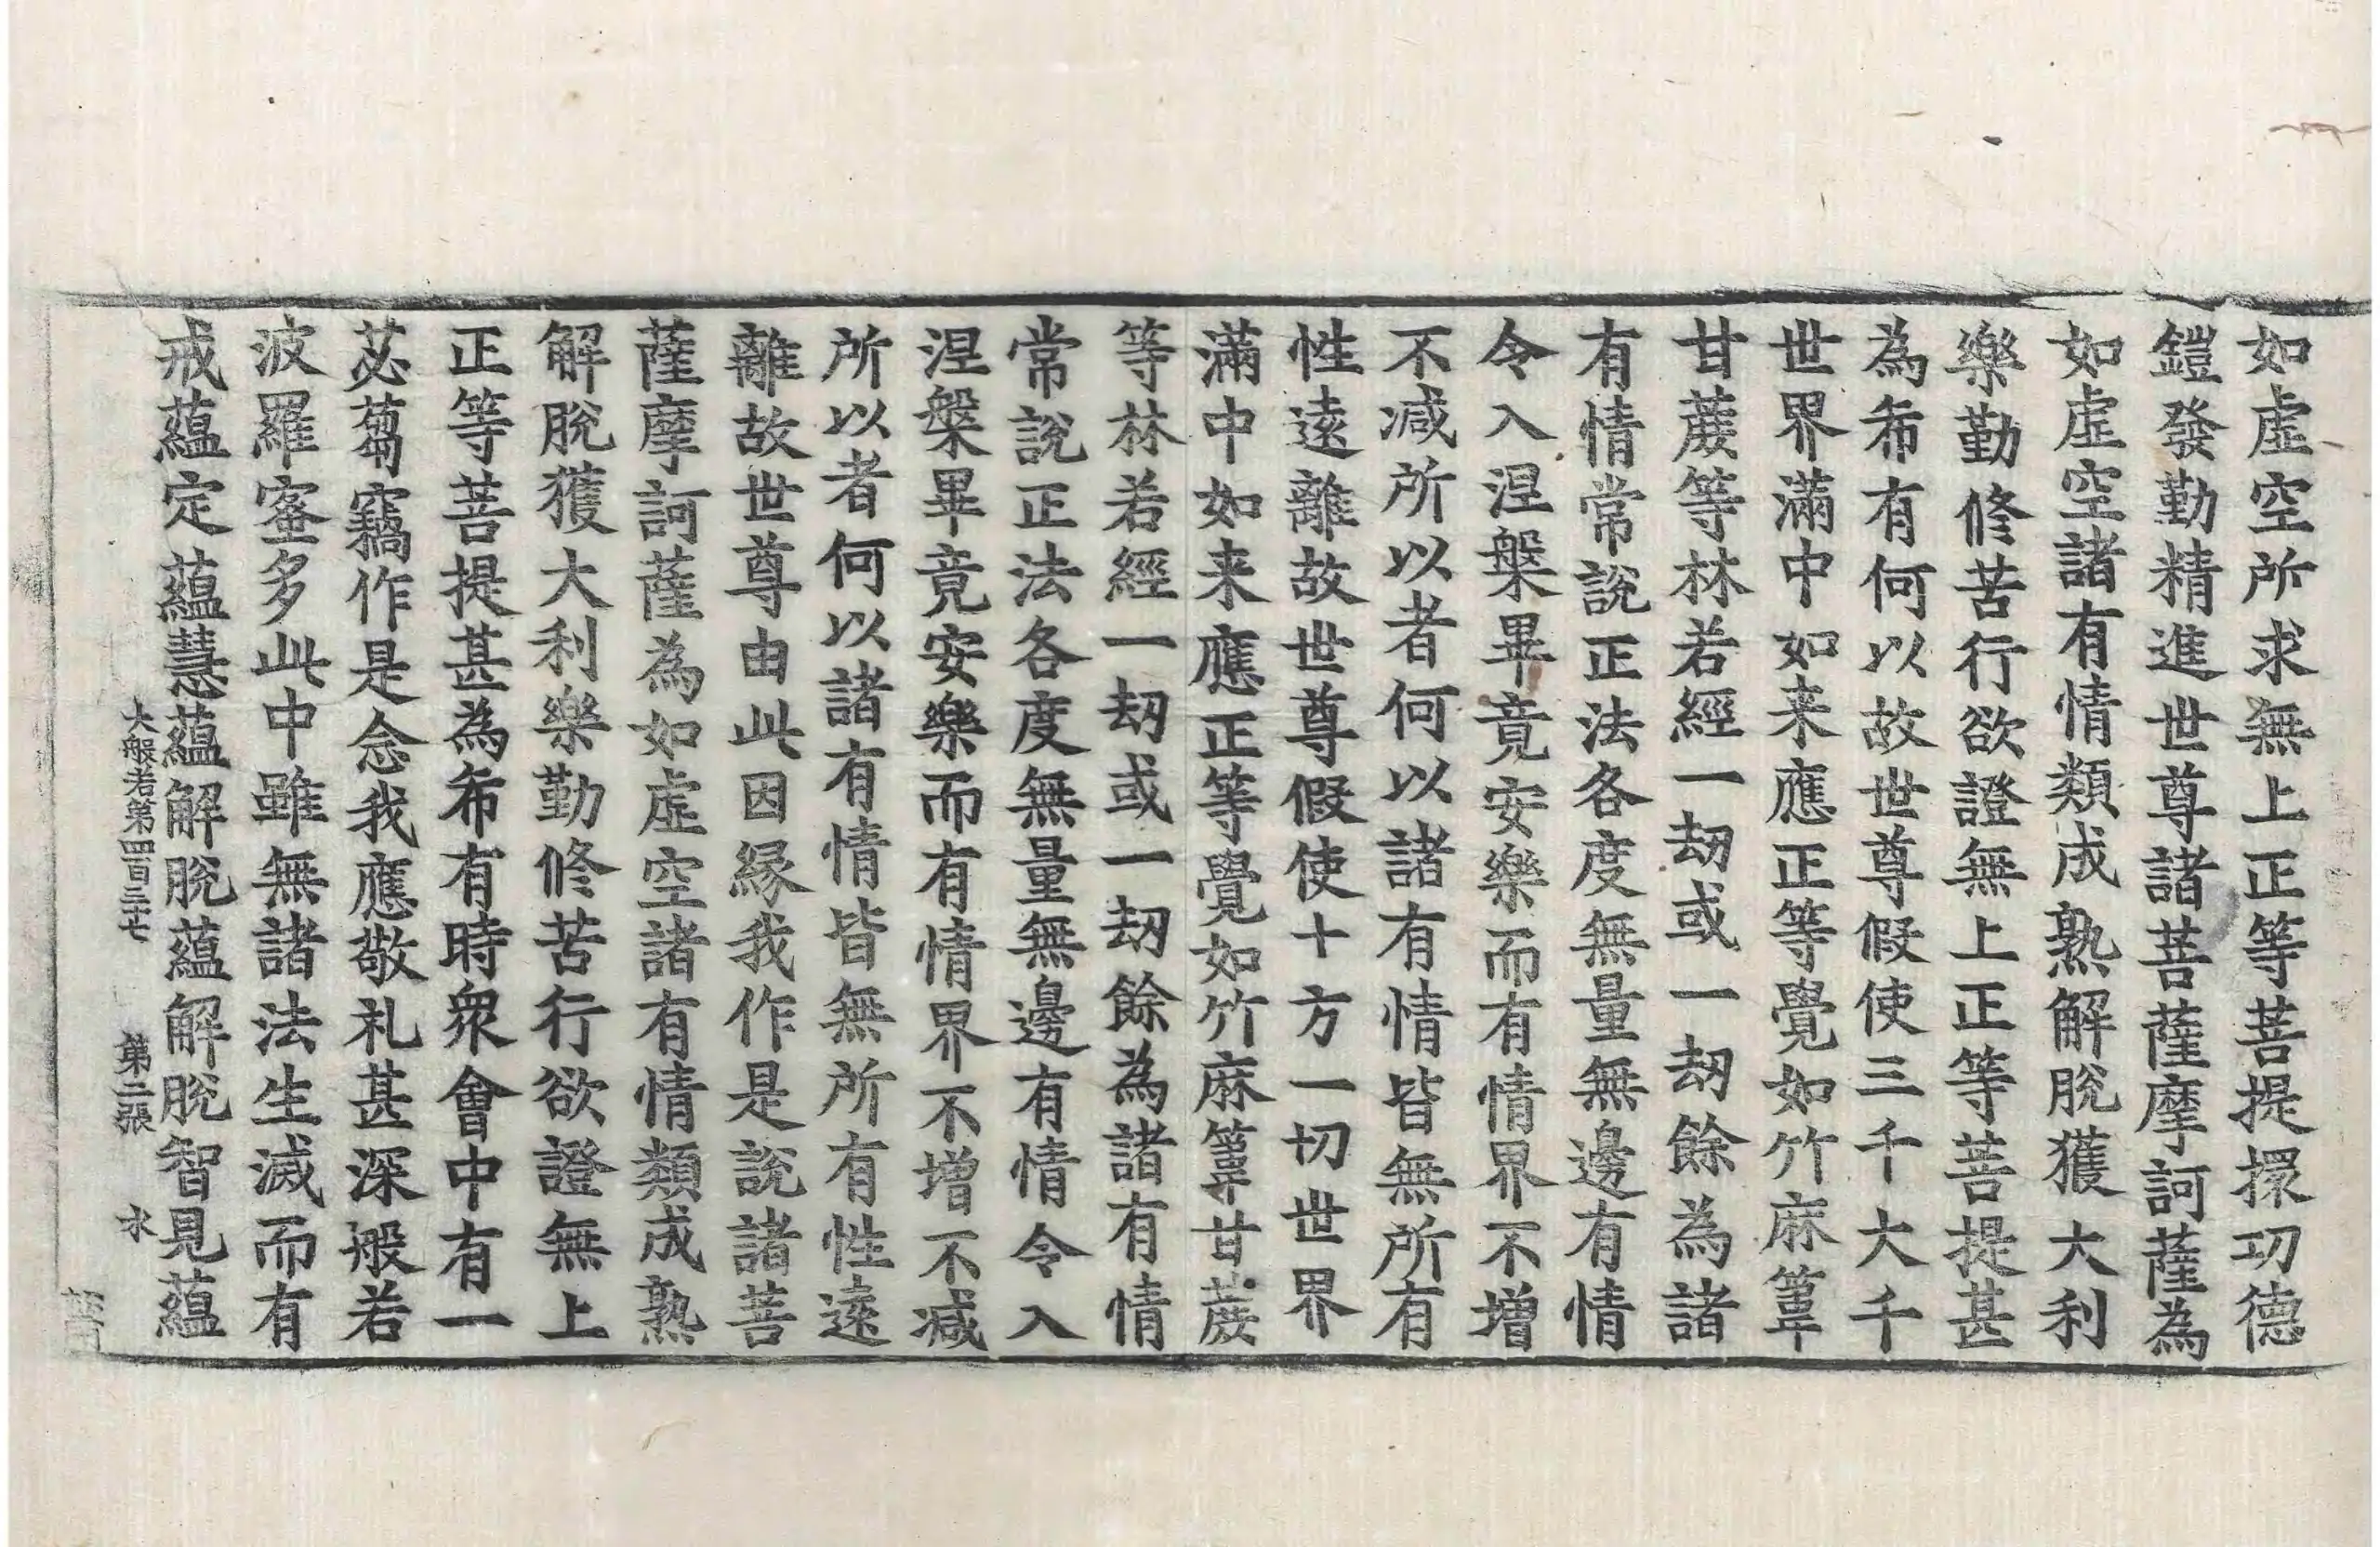 如虛空所求無上正等菩提擐功德
鎧發勤精進世尊諸菩薩摩訶薩為
如虛空諸有情類成熟解脫獲大利
樂勤修苦行欲證無上正等菩提甚
為希有何以故世尊假使三千大千
世界滿中如来應正等覺如竹麻葦
甘蔗等林若經一劫或一劫餘為諸
有情常說正法各度無量無邊有情
令入涅槃畢竟安樂而有情界不增
不減所以者何以諸有情皆無所有
性遠離故世尊假使十方一切世界
滿中如来應正等覺如竹麻葦甘蔗
等林若經一劫或一劫餘為諸有情
常說正法各度無量無邊有情令入
涅槃畢竟安樂而有情界不增不減
所以者何以諸有情皆無所有性遠
離故世尊由此因縁我作是說諸菩
薩摩訶薩為如虛空諸有情類成熟
解脫獲大利樂勤修苦行欲證無上
正等菩提甚為希有時衆會中有一
苾蒭竊作是念我應敬礼甚深般若
波羅蜜多此中雖無諸法生滅而有
戒蘊定蘊慧蘊解脫蘊解脫智見蘊
大般若第四百二十七 第二張 水